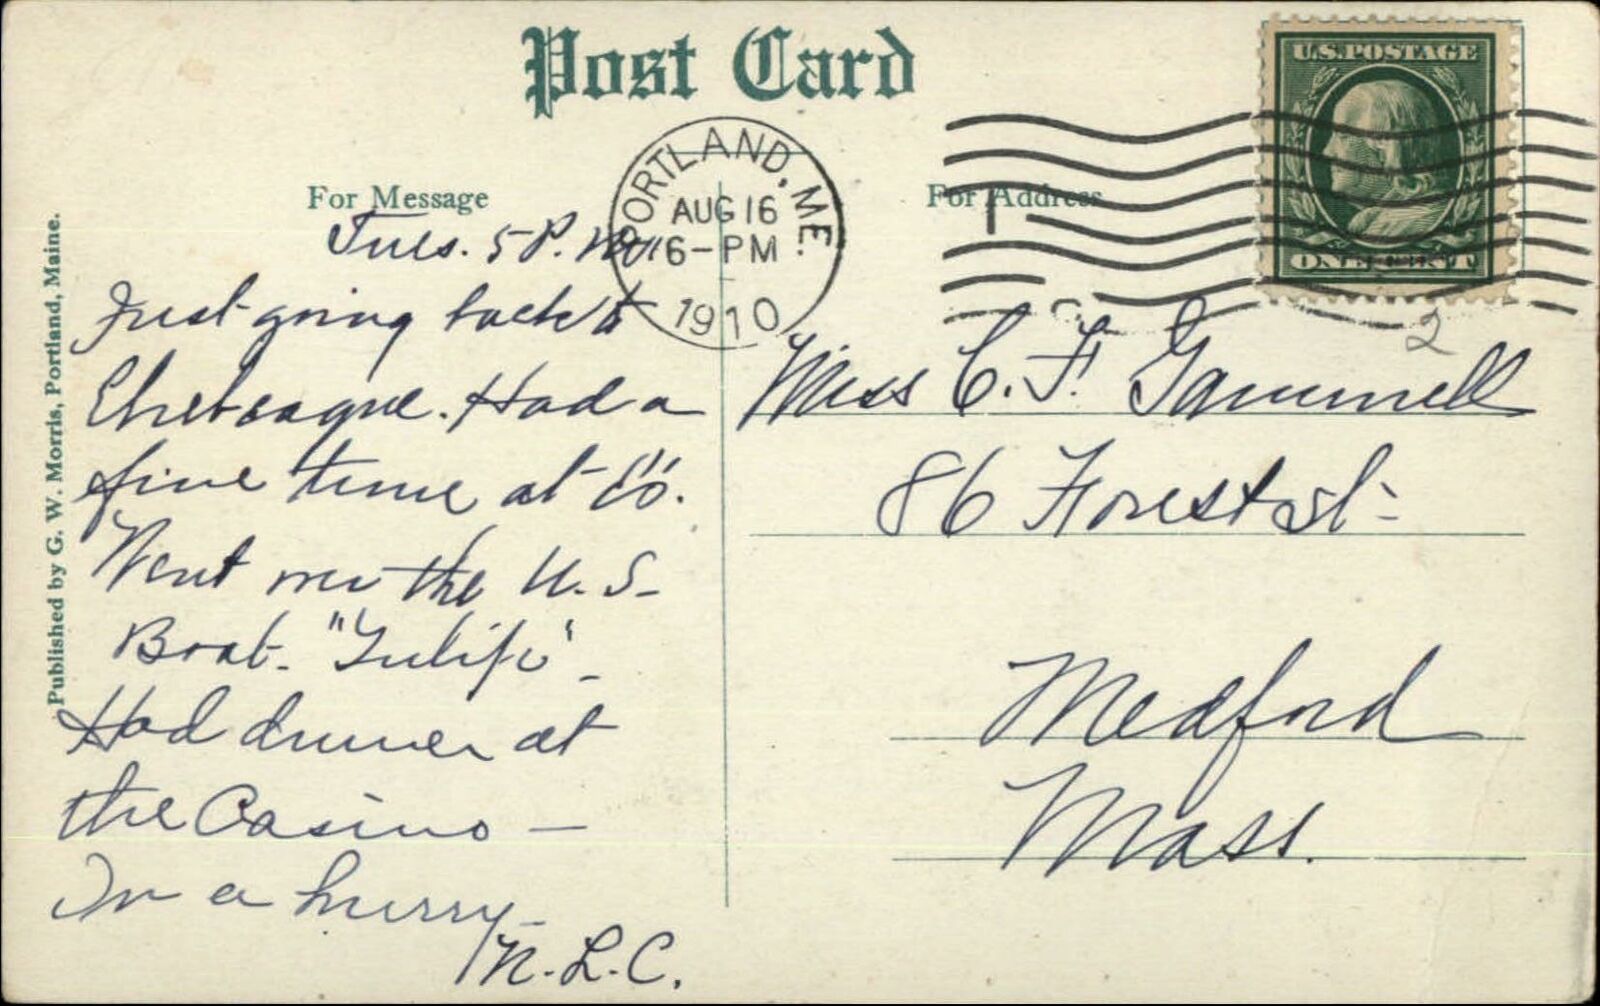 Post Card
U.S. POSTAGE
ONE CENT
PORTLAND, ME.
AUG 16
6-PM
1910
1
For Message
For Address
Tues. 5 P. M.
Just going back to
Chebeague. Had a
fine time at
Went over the U. S.
Boat - "Tulip" -
Had dinner at
the Casino -
In a hurry -
N. L. C.
Miss C. F. Gammell
86 Forest St -
Medford
Mass.
2
Published by G. W. Morris, Portland, Maine.